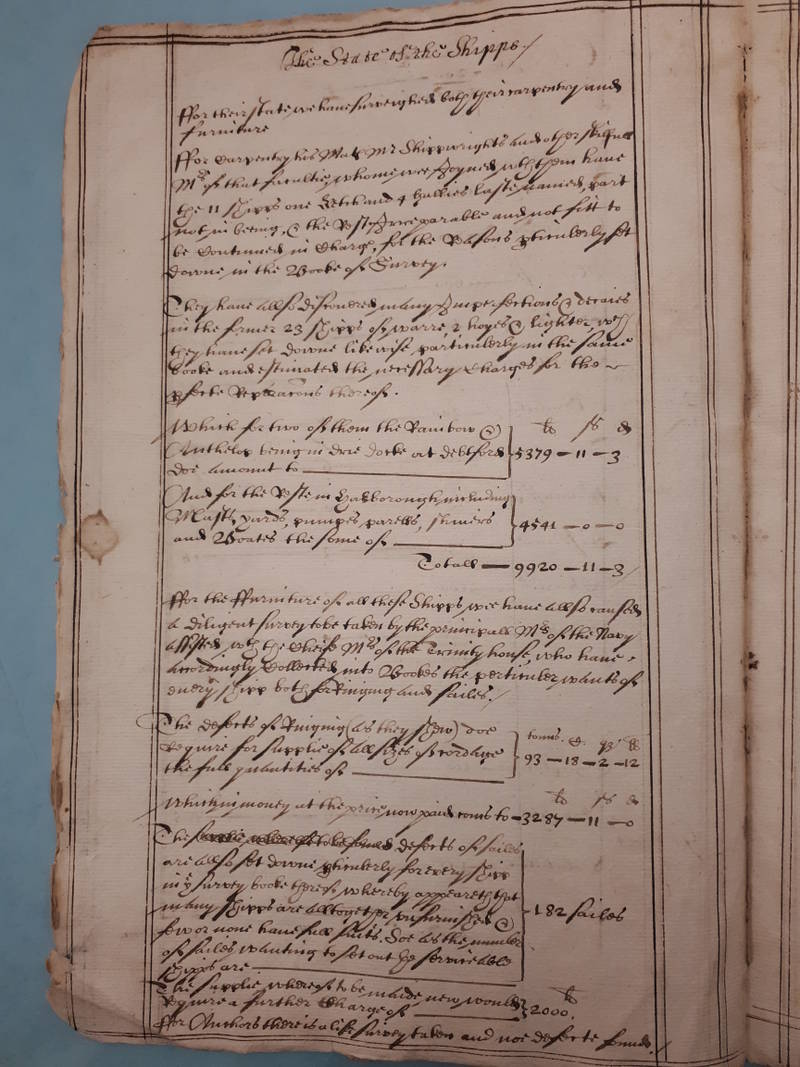 The State of the Shipps /
ffor their state, we have surveighed both their carpentry and
furniture
ffor Carpentry his Mats Mr Shippwrights and other skilfull
Mrs of that facultie, whome wee Joyned wth them have
the 11 shipps one Ketch and 4 Gallies laste named, part
not in being, & the Rest Irreparable and not fitt to
be Continued in Charge, for the Reasons pticulerly set
downe in the Booke of Survey.
They have allso discovered many Imperfections & decaies
in the former 23 shipps of warre, 2 hoyes & lighter wch
they have set downe likewise particularly in the same
booke and estimated the necessary Charges for the
pfecte Reparacons thereof.
Which for two of them the Rainbow &
Anthelop being in drie docke at debtford
doe amount to
li s d
5379 - 11 - 3
And for the Rest in Harborough, including
Masts, yards, pumpes, parells,
and Boates the some of
4541 - 0 - 0
Totall - 9920 - 11 - 3 /
ffor the ffurniture of all these Shipps wee have allso caused
a diligent survey to be taken by the principall Mrs of the Navy
Assisted wth the Cheife Mrs of the Trinity house, who have
accordingly Collected into Bookes the perticuler wants of
every shipp both for Rigging and sailes. /
The defects of Rigging (as they shew) doe
Require for supplie of all sizes of cordage
the full quantities of
tonns. C. qr li
93 - 18 - 2 - 12
Which in money at the price now paid coms to - 3287 - 11 - 0
li s d
The defects of sailes
are allso set downe pticulerly for every shipp
in ye survey booke thereof whereby appeareth that
many shipps are alltogether unfurnished &
few or none have full suits. Soe as the number
of sailes wanting to set out ye serviceable
shipps are
182 sailes
The supplie whereof to be made new would
Require a further Charge of
li
2000.
ffor Anchors there is a like survey taken and noe defecte found. /